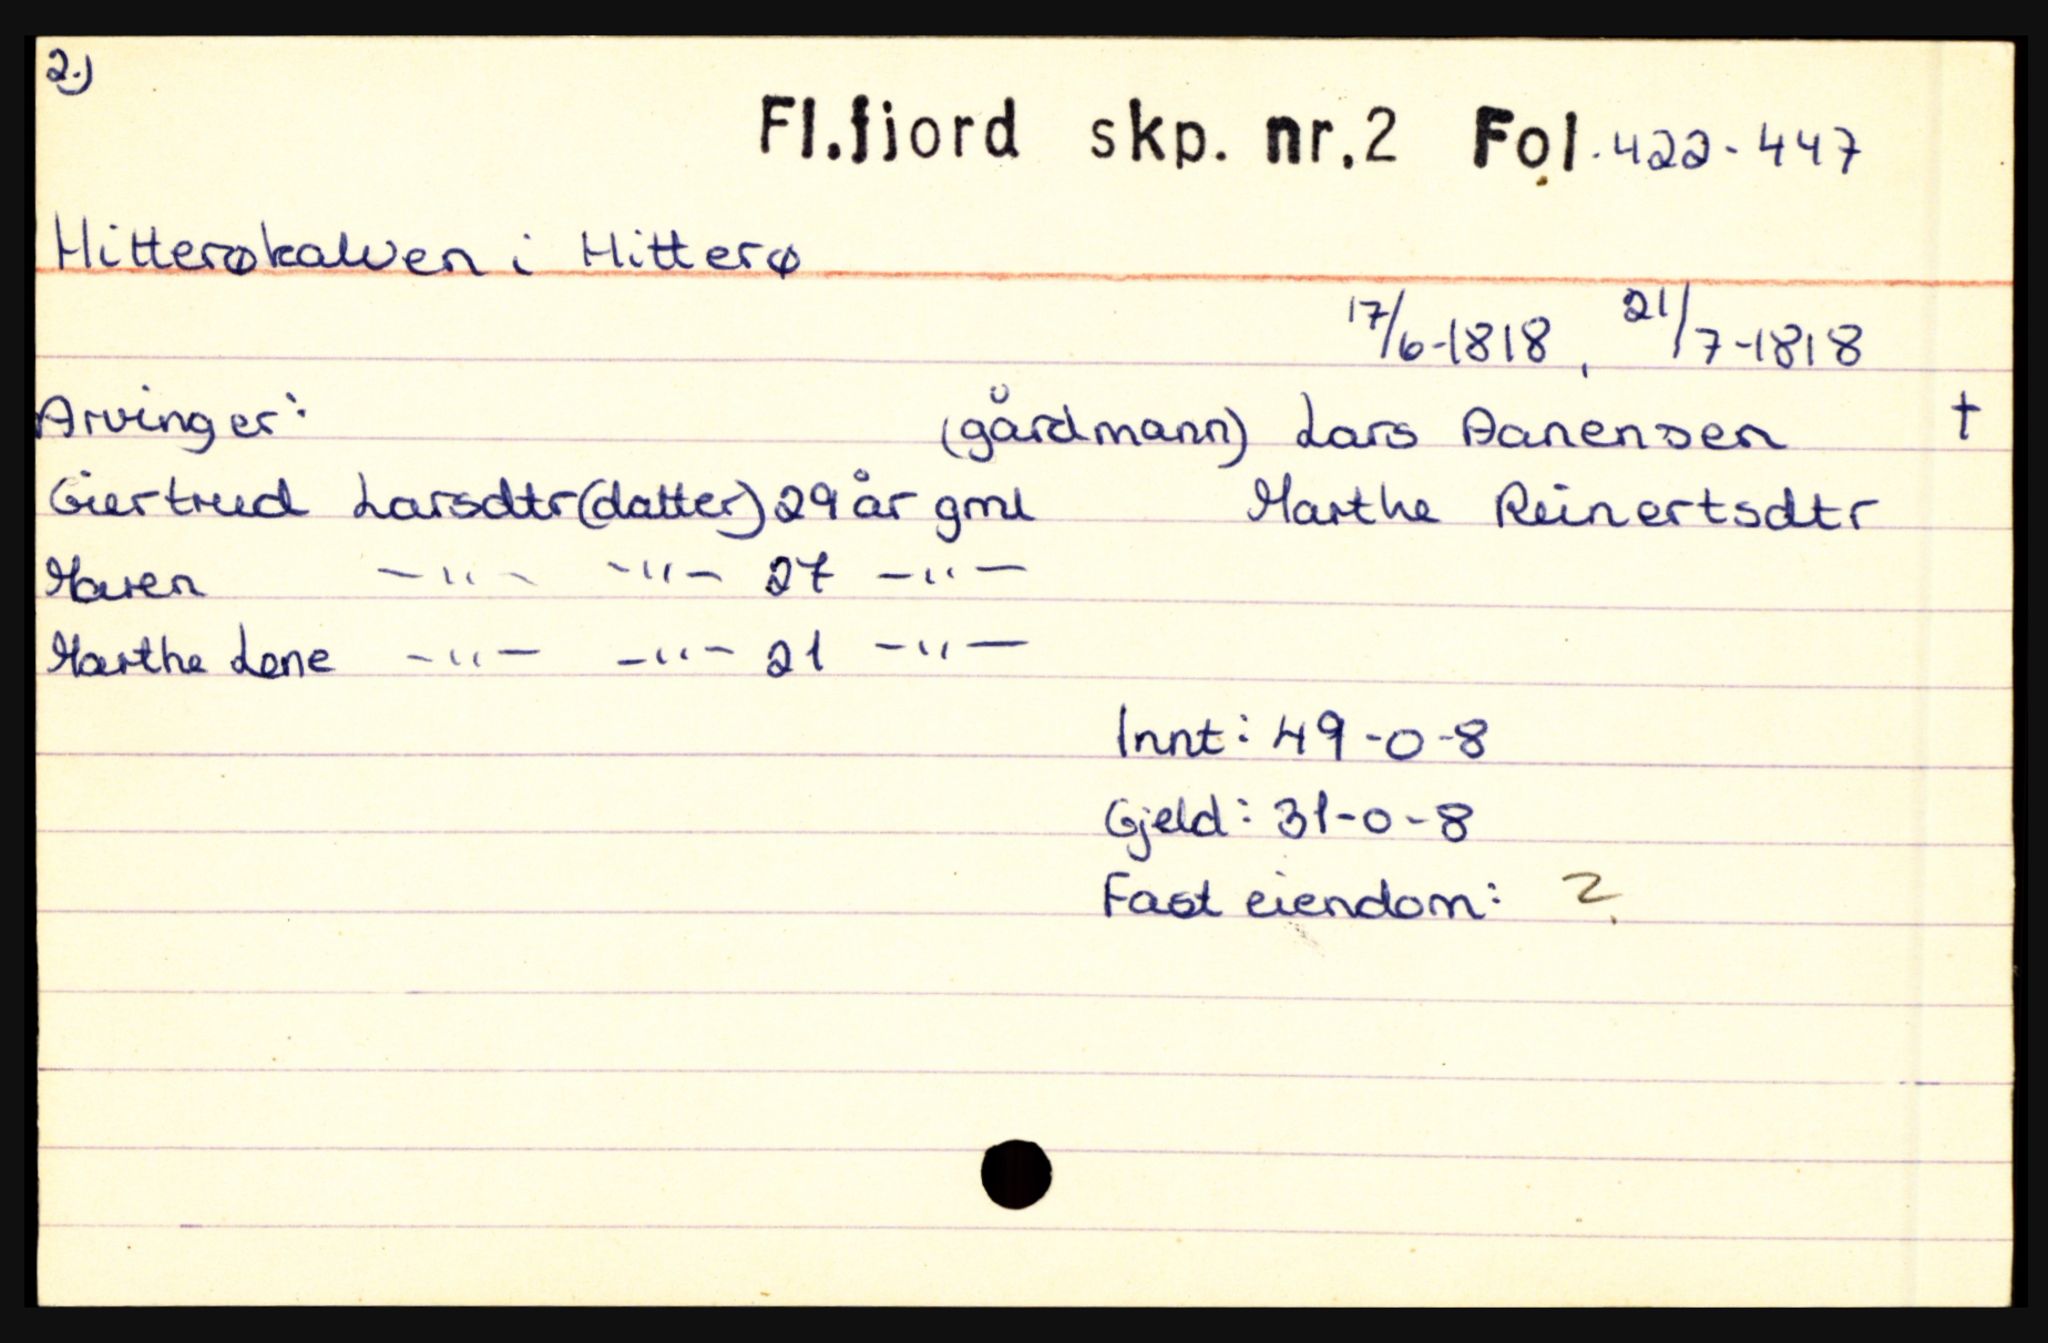 2.)
Fl.fjord skp. nr.2 Fol.422-447
Hitterøkalven i Hitterø
17/6-1818, 21/7-1818
Arvinger: (gårdmann) Lars Aanensen †
Giertrud Larsdtr (datter) 29 år gml Marthe Reinertsdtr
Maren -"- -"- 27 -"-
Marthe Lene -"- -"- 21 -"-
Innt: 49-0-8
Gjeld: 31-0-8
Fast eiendom: ?